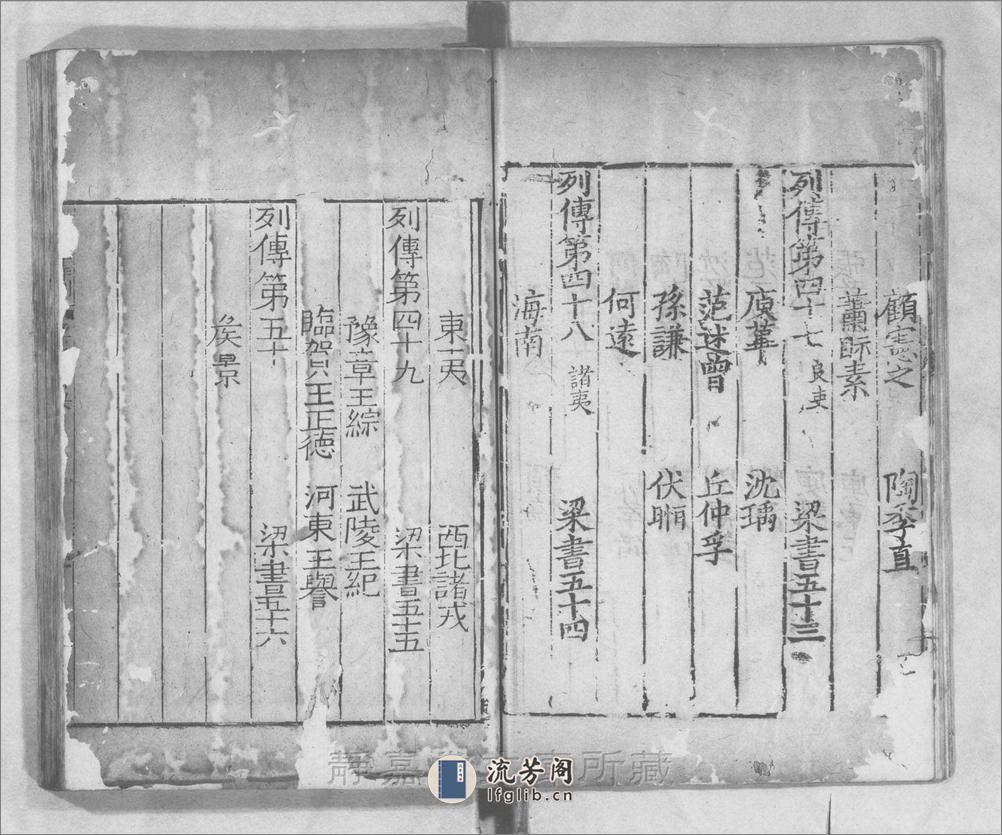 顧憲之　陶季直
蕭眎素
列傳第四十七　良吏　梁書五十三
庾蓽　沈瑀
范述曾　丘仲孚
孫謙　伏暅
何遠
列傳第四十八　諸夷　梁書五十四
海南
東夷　西北諸戎
列傳第四十九　梁書五十五
豫章王綜　武陵王紀
臨賀王正德　河東王譽
列傳第五十　梁書五十六
侯景
静嘉堂文庫所藏
流芳阁
lfglib.cn